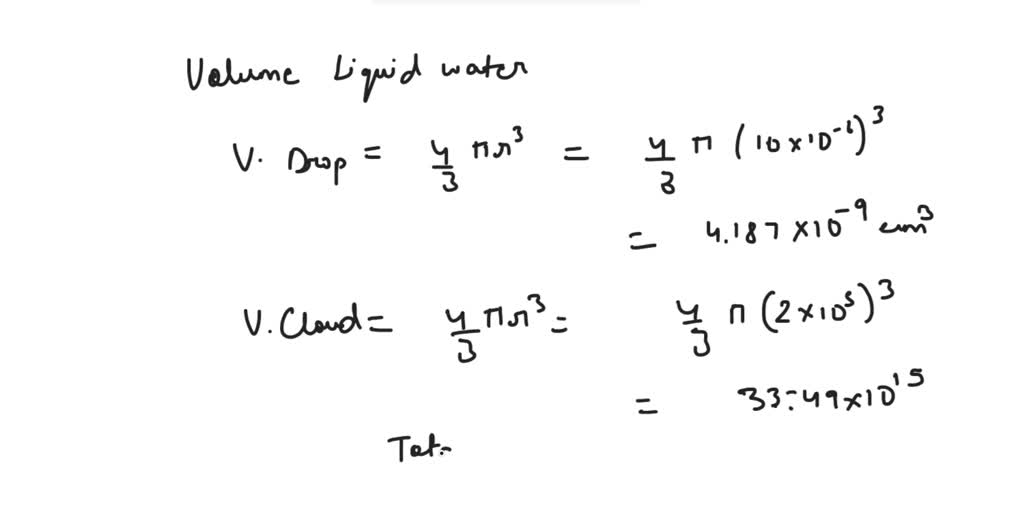 Volume Liquid water
V. Drop = 4/3 πr³ = 4/3 π (10×10⁻⁶)³
= 4.187×10⁻⁹ cm³
V. Cloud = 4/3 πr³ = 4/3 π (2×10⁵)³
= 33.49×10¹⁵
Tot